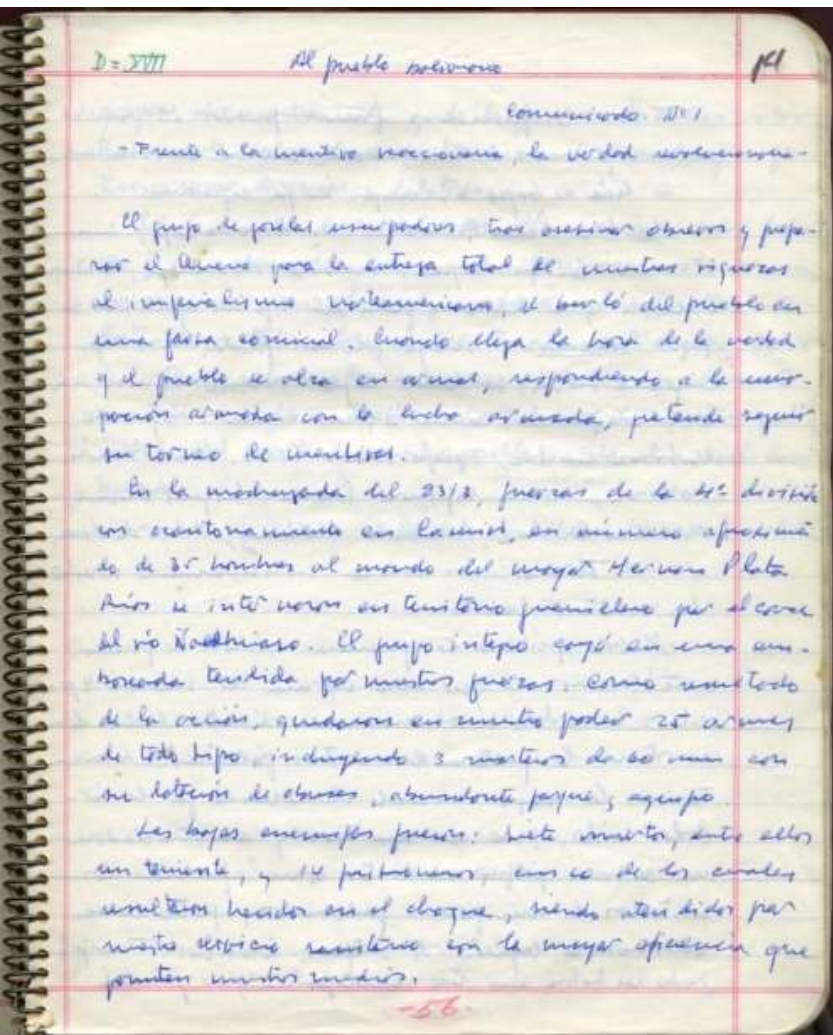 D = XVII Al pueblo boliviano
Comunicado Nº 1
- Frente a la mentira reaccionaria, la verdad revolucionaria -
El grupo de gorilas usurpadores, tras asesinar obreros y prepa-
rar el terreno para la entrega total de nuestras riquezas
al imperialismo norteamericano, se burló del pueblo en
una farsa comicial. Cuando llega la hora de la verdad
y el pueblo se alza en armas, respondiendo a la usur-
pación armada con la lucha armada, pretende seguir
su torneo de mentiras.
En la madrugada del 23/3, fuerzas de la 4ª división
con acantonamiento en Camiri, en número aproxima
do de 35 hombres al mando del mayor Hernan Plata
Ríos se internaron en territorio guerrillero por el cauce
del río Ñacahuaso. El grupo íntegro cayó en una em-
boscada tendida por nuestras fuerzas. Como resultado
de la acción, quedaron en nuestro poder 25 armas
de todo tipo, incluyendo 3 morteros de 60 mm con
su dotación de obuses, abundante parque y equipo.
Las bajas enemigas fueron: siete muertos, entre ellos
un teniente, y 14 prisioneros, cinco de los cuales
resultaron heridos en el choque, siendo atendidos por
nuestro servicio sanitario con la mayor eficiencia que
permiten nuestros medios.
-56-